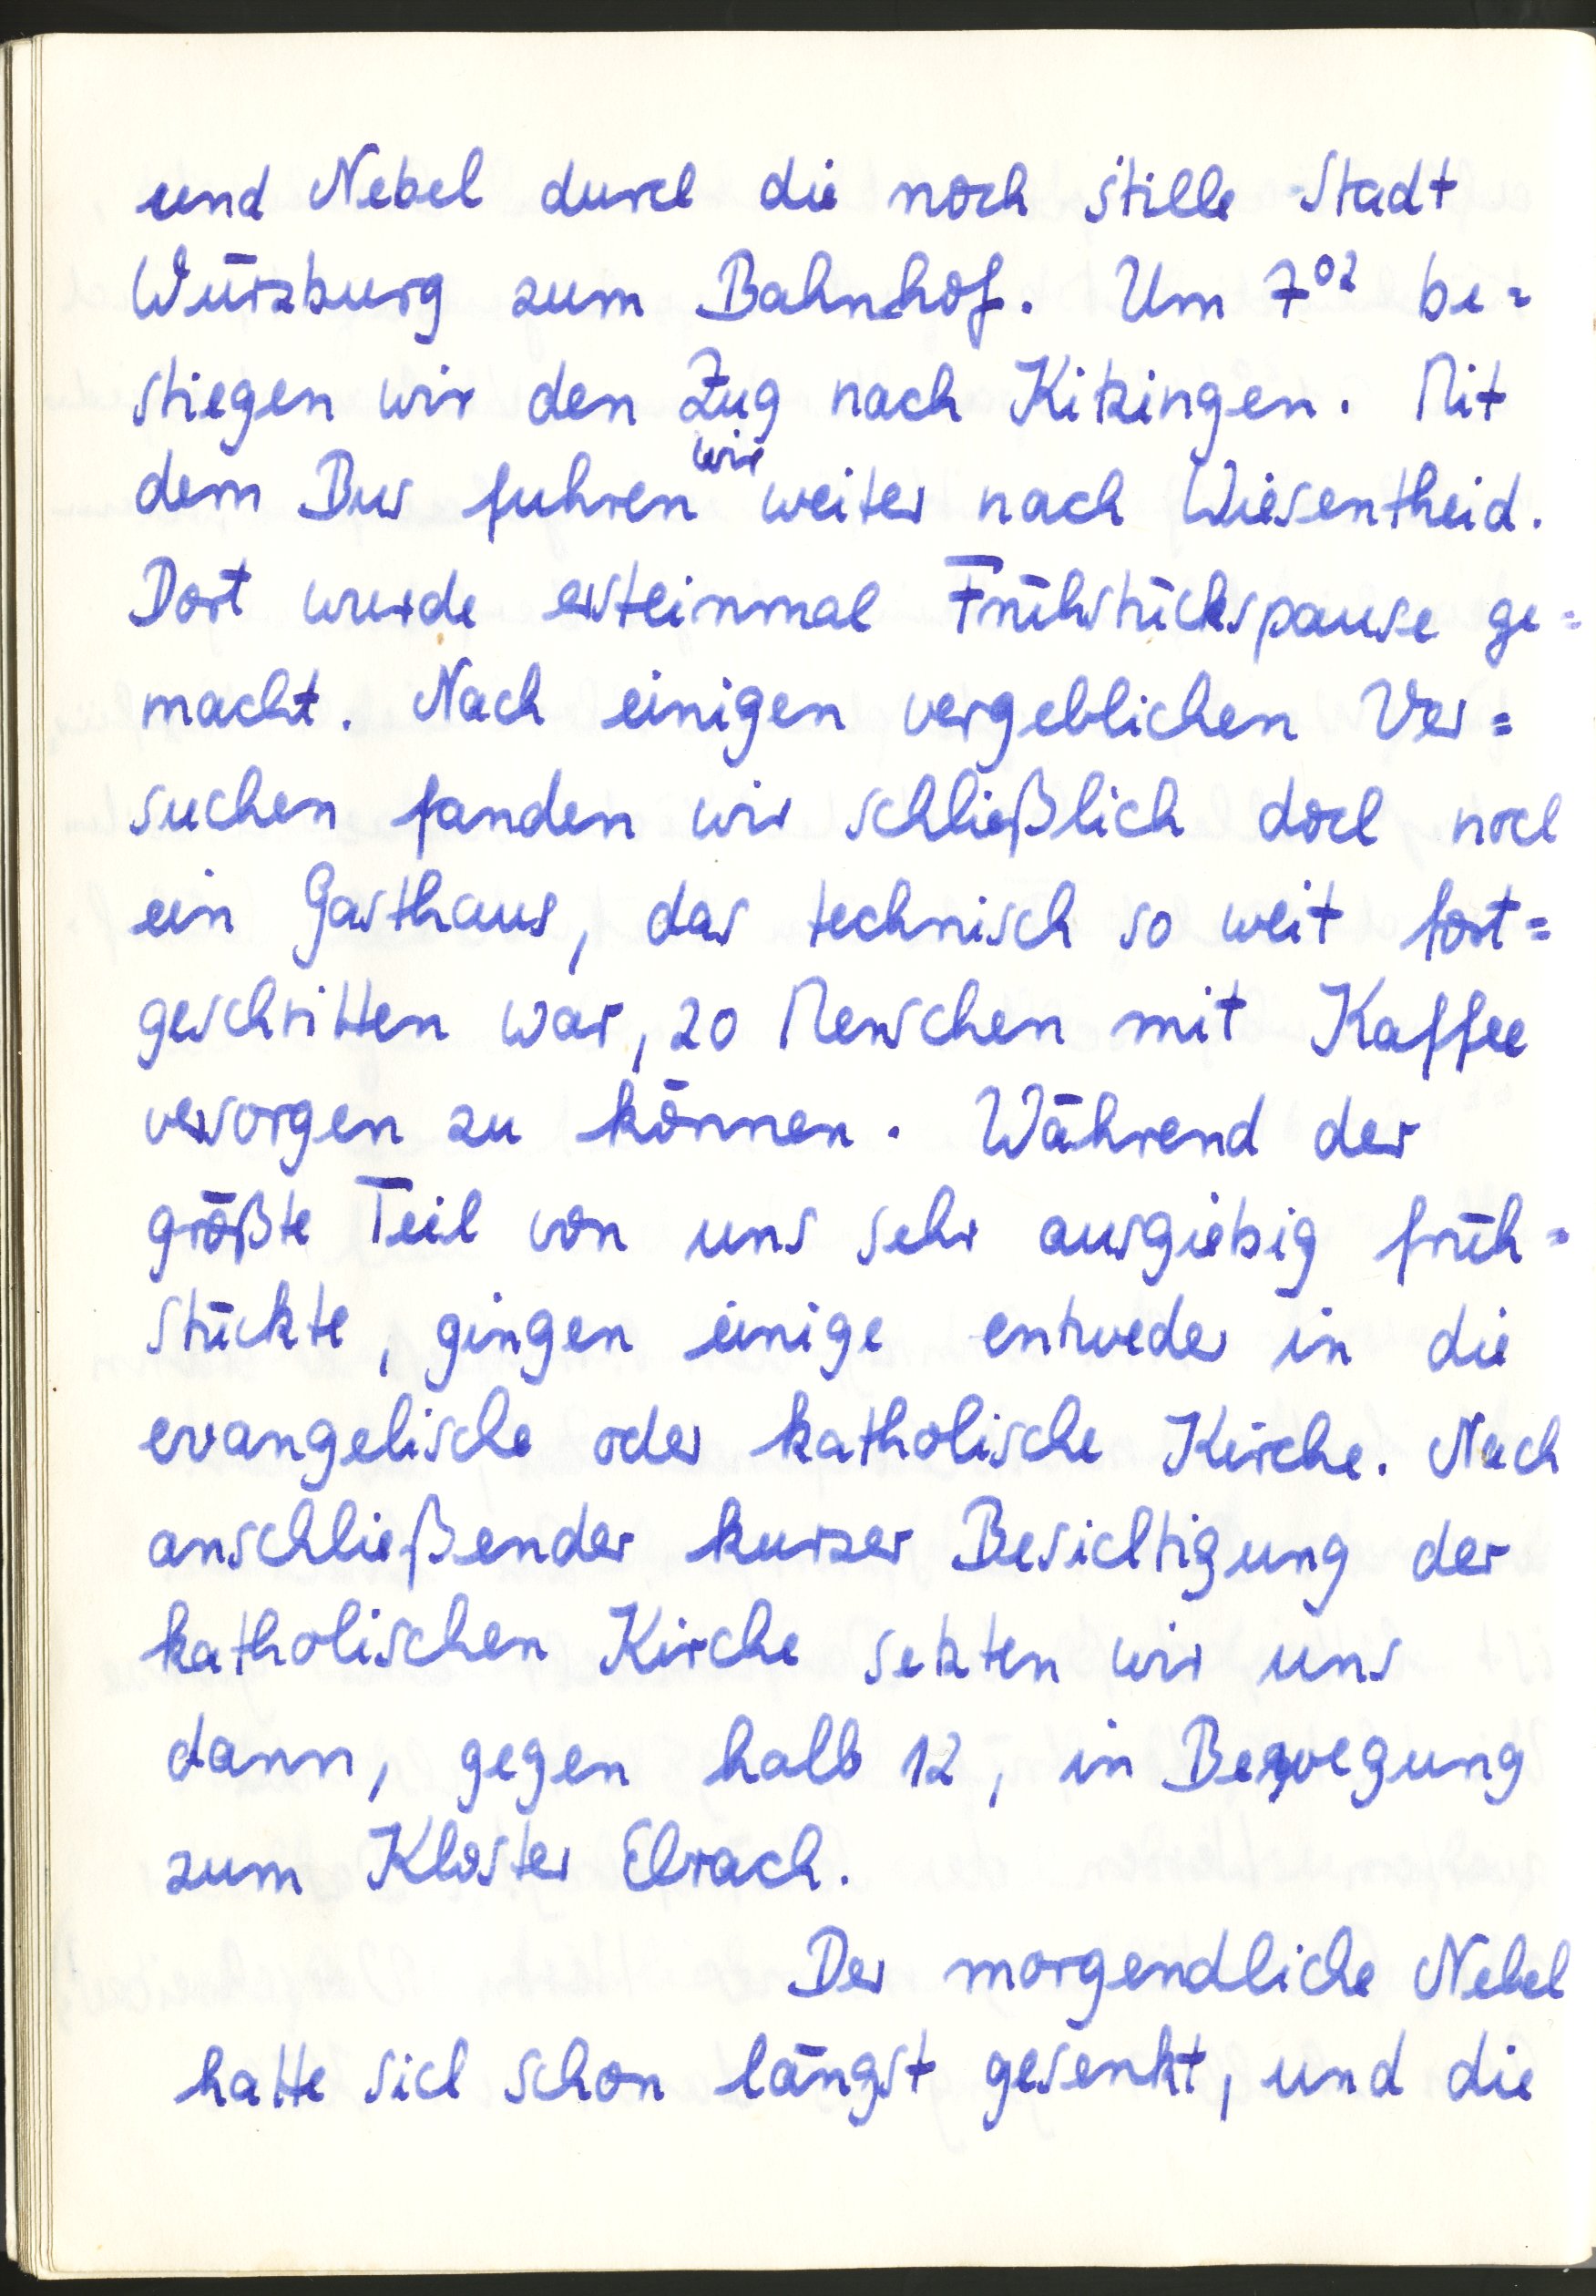 und Nebel durch die noch stille Stadt
Würzburg zum Bahnhof. Um 7⁰² be=
stiegen wir den Zug nach Kitzingen. Mit
dem Bus fuhren wir weiter nach Wiesentheid.
Dort wurde ersteinmal Frühstückspause ge=
macht. Nach einigen vergeblichen Ver=
suchen fanden wir schließlich doch noch
ein Gasthaus, das technisch so weit fort=
geschritten war, 20 Menschen mit Kaffee
versorgen zu können. Während der
größte Teil von uns sehr ausgiebig früh=
stückte, gingen einige entweder in die
evangelische oder katholische Kirche. Nach
anschließender kurzer Besichtigung der
katholischen Kirche setzten wir uns
dann, gegen halb 12, in Bewegung
zum Kloster Ebrach.
Der morgendliche Nebel
hatte sich schon längst gesenkt, und die